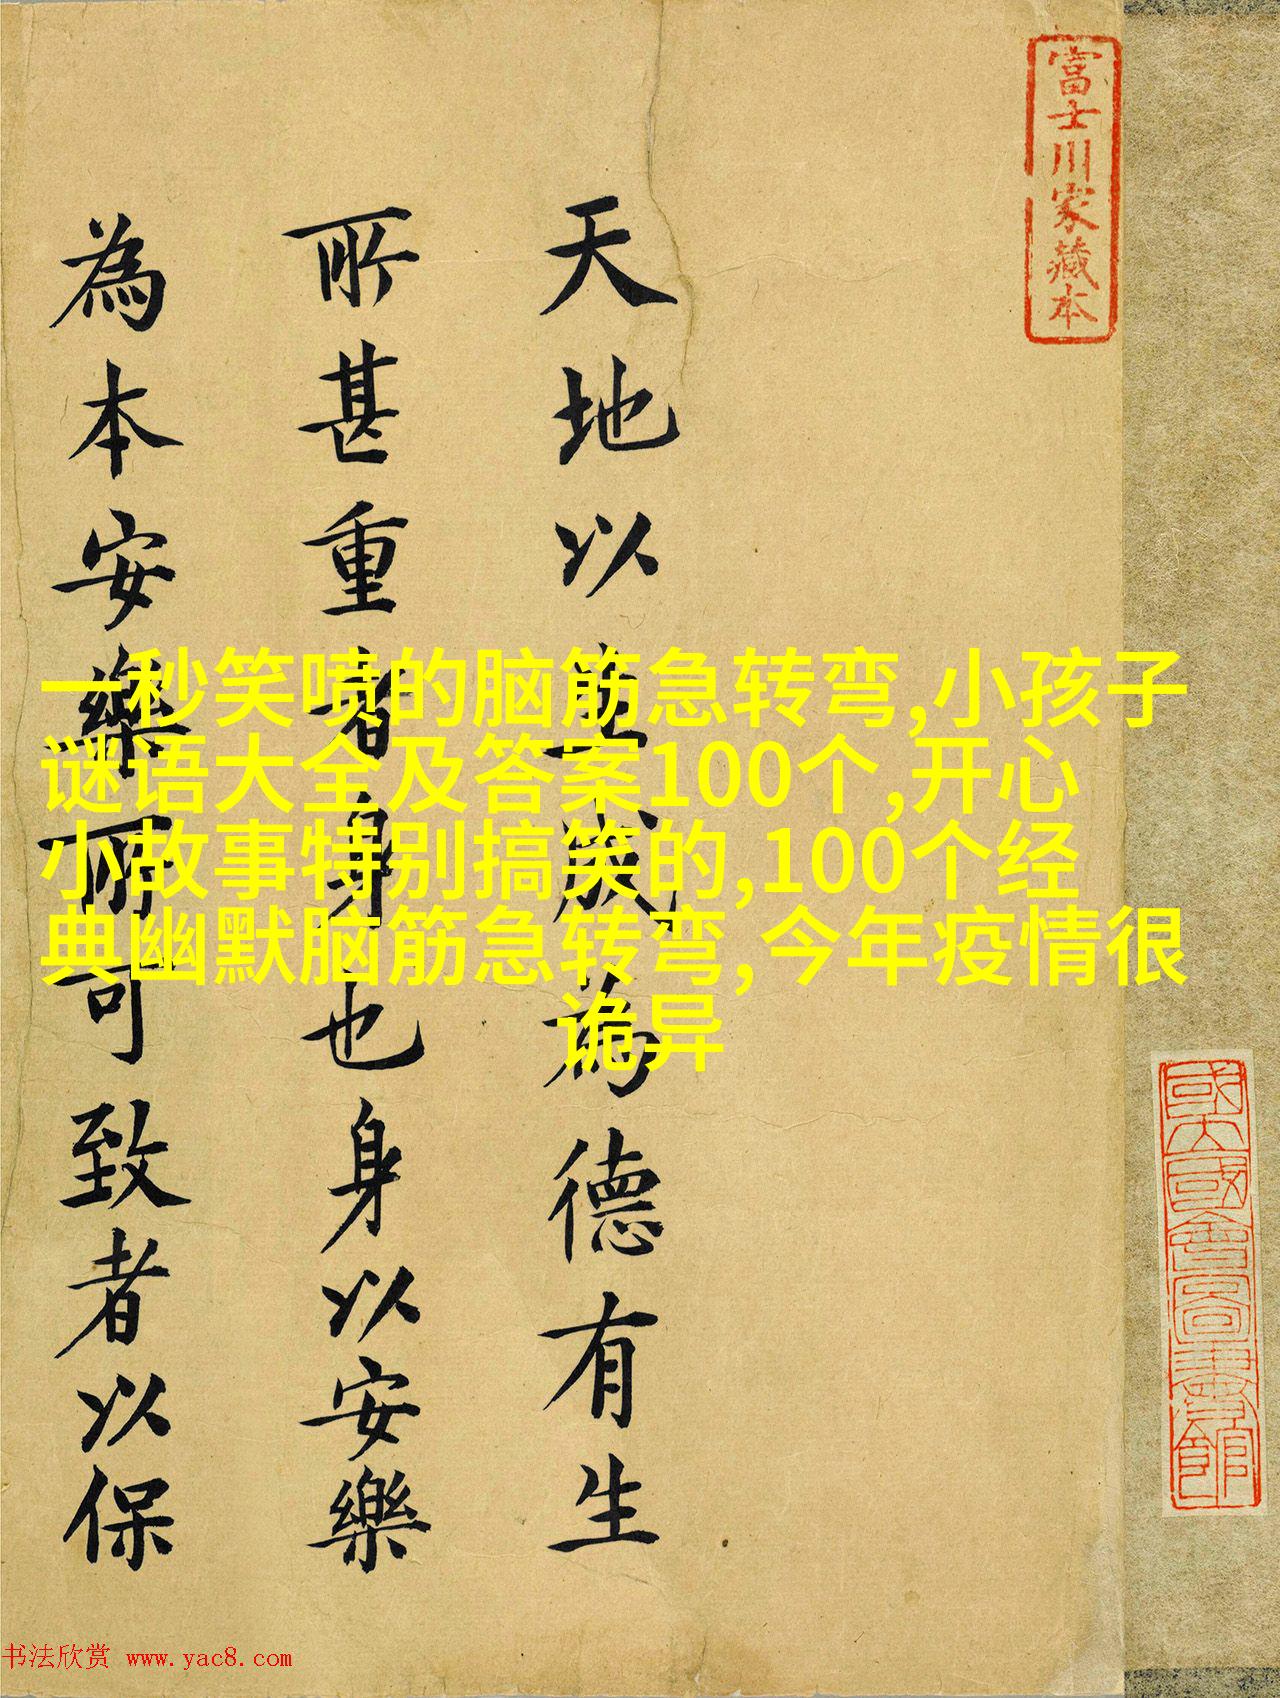 富士川家藏本
國立國會圖書館
天地以生成為德有生
所甚重者身也身以安樂
為本安樂所可致者以保
一秒笑喷的脑筋急转弯,小孩子
谜语大全及答案100个,开心
小故事特别搞笑的,100个经
典幽默脑筋急转弯,今年疫情很
诡异
书法欣赏 www.yac8.com